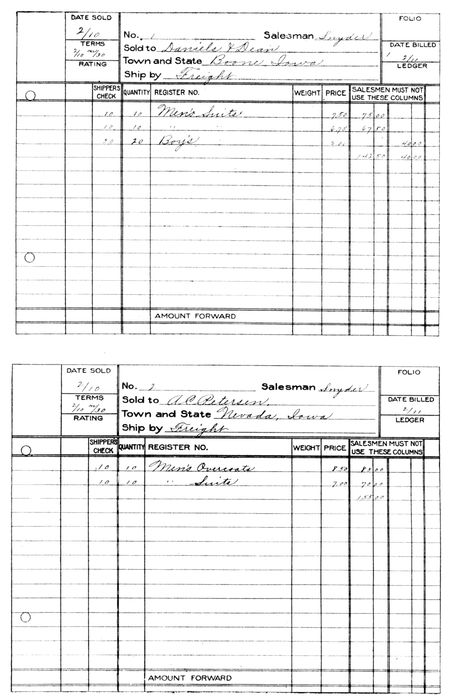 DATE SOLD
2/10
TERMS
2/10 n/30
RATING
No. 1 Salesman Snyder
Sold to Daniels & Dean
Town and State Boone, Iowa
Ship by Freight
FOLIO
DATE BILLED
2/11
LEDGER
SHIPPERS CHECK QUANTITY REGISTER NO. WEIGHT PRICE SALESMEN MUST NOT USE THESE COLUMNS
10 10 Men's Suits 7.50 75.00
10 10 " 6.75 67.50
20 20 Boy's 40.00
142.50 40.00
AMOUNT FORWARD
DATE SOLD
2/10
TERMS
2/10 n/30
RATING
No. 2 Salesman Snyder
Sold to A.C. Petersen,
Town and State Nevada, Iowa
Ship by Freight
FOLIO
DATE BILLED
2/11
LEDGER
SHIPPERS CHECK QUANTITY REGISTER NO. WEIGHT PRICE SALESMEN MUST NOT USE THESE COLUMNS
10 10 Men's Overcoats 8.50 85.00
10 10 " Suits 7.00 70.00
155.00
AMOUNT FORWARD